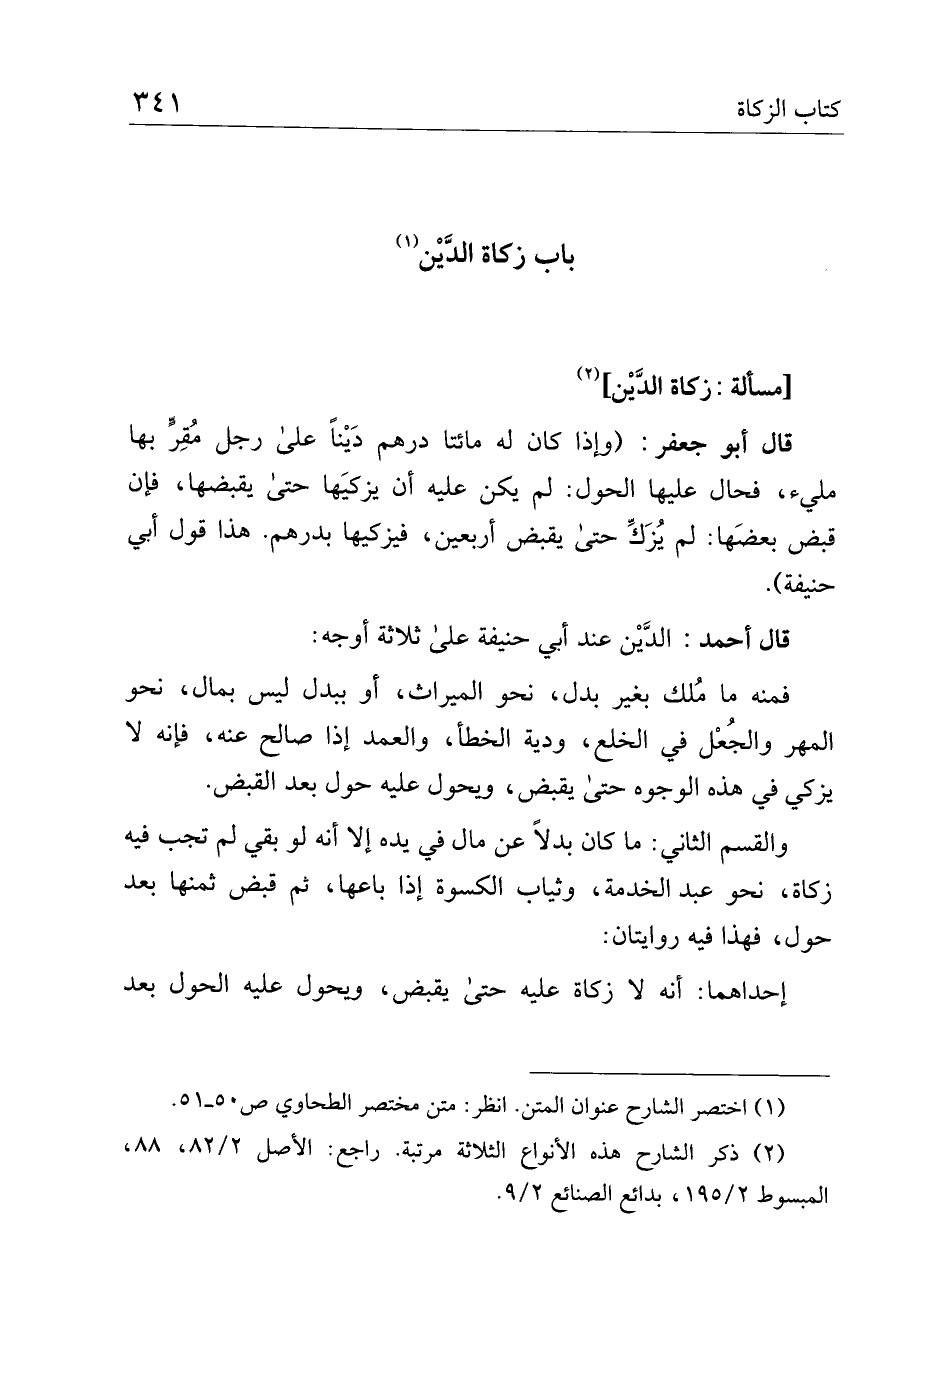 كتاب الزكاة ٣٤١
باب زكاة الدَّيْن(١)
[مسألة : زكاة الدَّيْن](٢)
قال أبو جعفر : (وإذا كان له مائتا درهم دَيْناً علىٰ رجل مُقِرٍّ بها
مليء، فحال عليها الحول: لم يكن عليه أن يزكيَها حتىٰ يقبضها، فإن
قبض بعضَها: لم يُزَكِّ حتىٰ يقبض أربعين، فيزكيها بدرهم. هذا قول أبي
حنيفة).
قال أحمد : الدَّيْن عند أبي حنيفة علىٰ ثلاثة أوجه:
فمنه ما مُلك بغير بدل، نحو الميراث، أو ببدل ليس بمال، نحو
المهر والجُعْل في الخلع، ودية الخطأ، والعمد إذا صالح عنه، فإنه لا
يزكي في هذه الوجوه حتىٰ يقبض، ويحول عليه حول بعد القبض.
والقسم الثاني: ما كان بدلاً عن مال في يده إلا أنه لو بقي لم تجب فيه
زكاة، نحو عبد الخدمة، وثياب الكسوة إذا باعها، ثم قبض ثمنها بعد
حول، فهذا فيه روايتان:
إحداهما: أنه لا زكاة عليه حتىٰ يقبض، ويحول عليه الحول بعد
(١) اختصر الشارح عنوان المتن. انظر: متن مختصر الطحاوي ص٥٠ـ٥١.
(٢) ذكر الشارح هذه الأنواع الثلاثة مرتبة. راجع: الأصل ٨٢/٢، ٨٨،
المبسوط ١٩٥/٢، بدائع الصنائع ٩/٢.